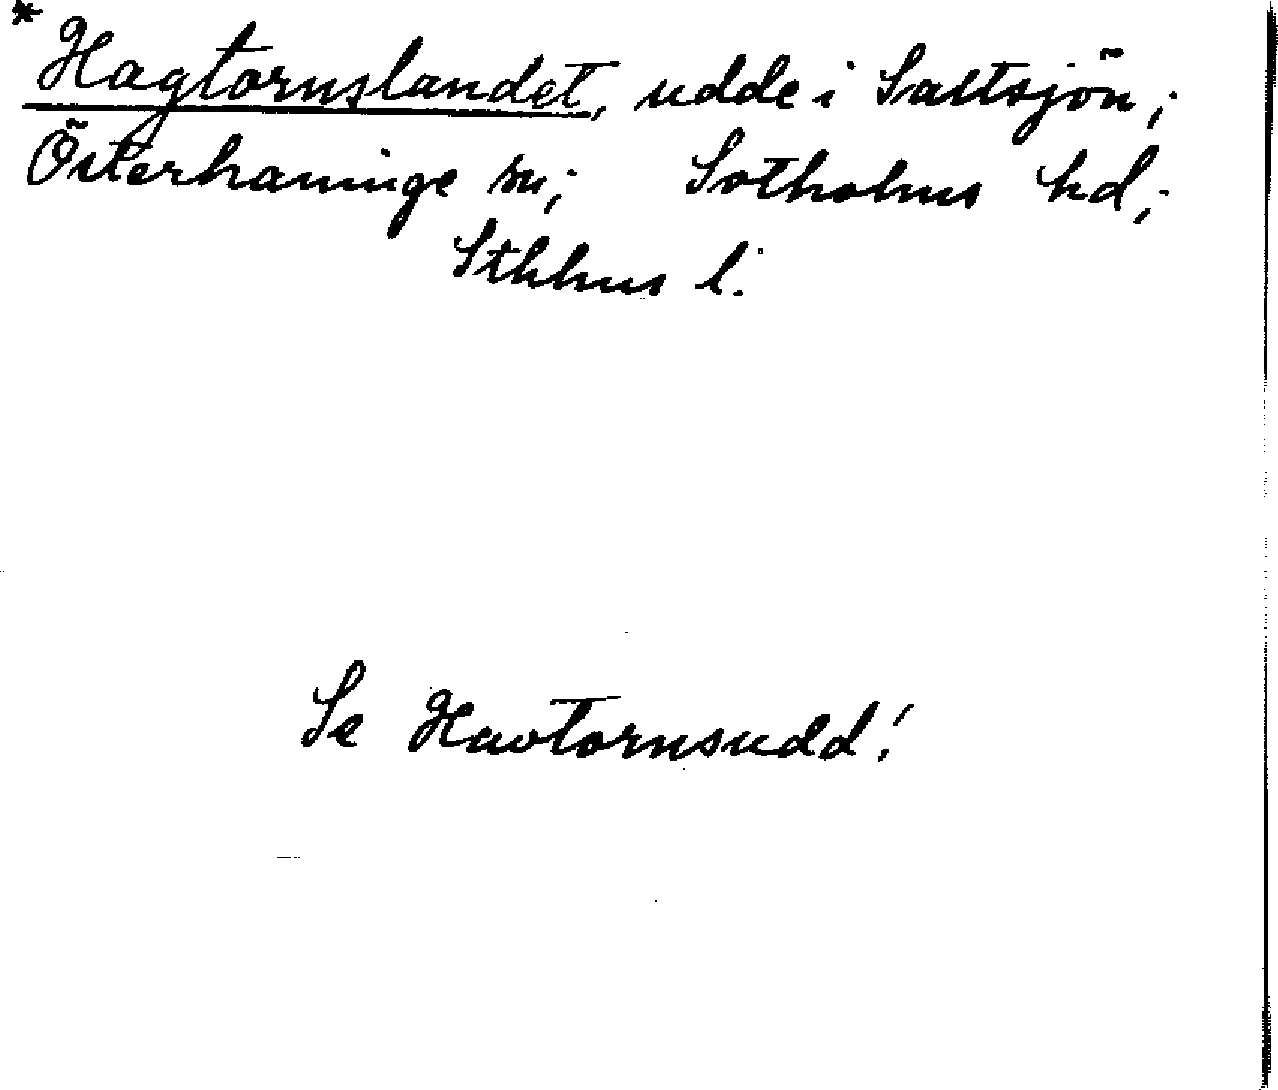 * Hagtornslandet, udde i Saltsjön;
Österhaninge sn; Sotholms hd;
Sthlms l.
Se Havtornsudd!